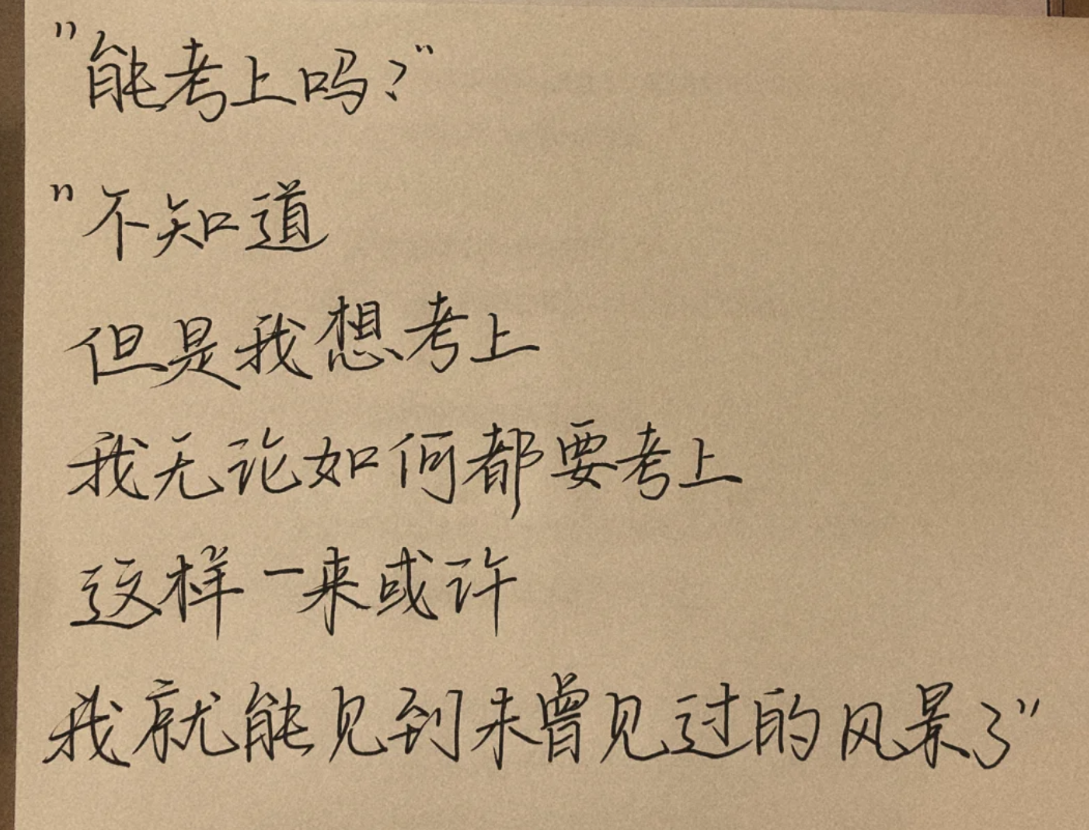 "能考上吗？"
"不知道
但是我想考上
我无论如何都要考上
这样一来或许
我就能见到未曾见过的风景了"